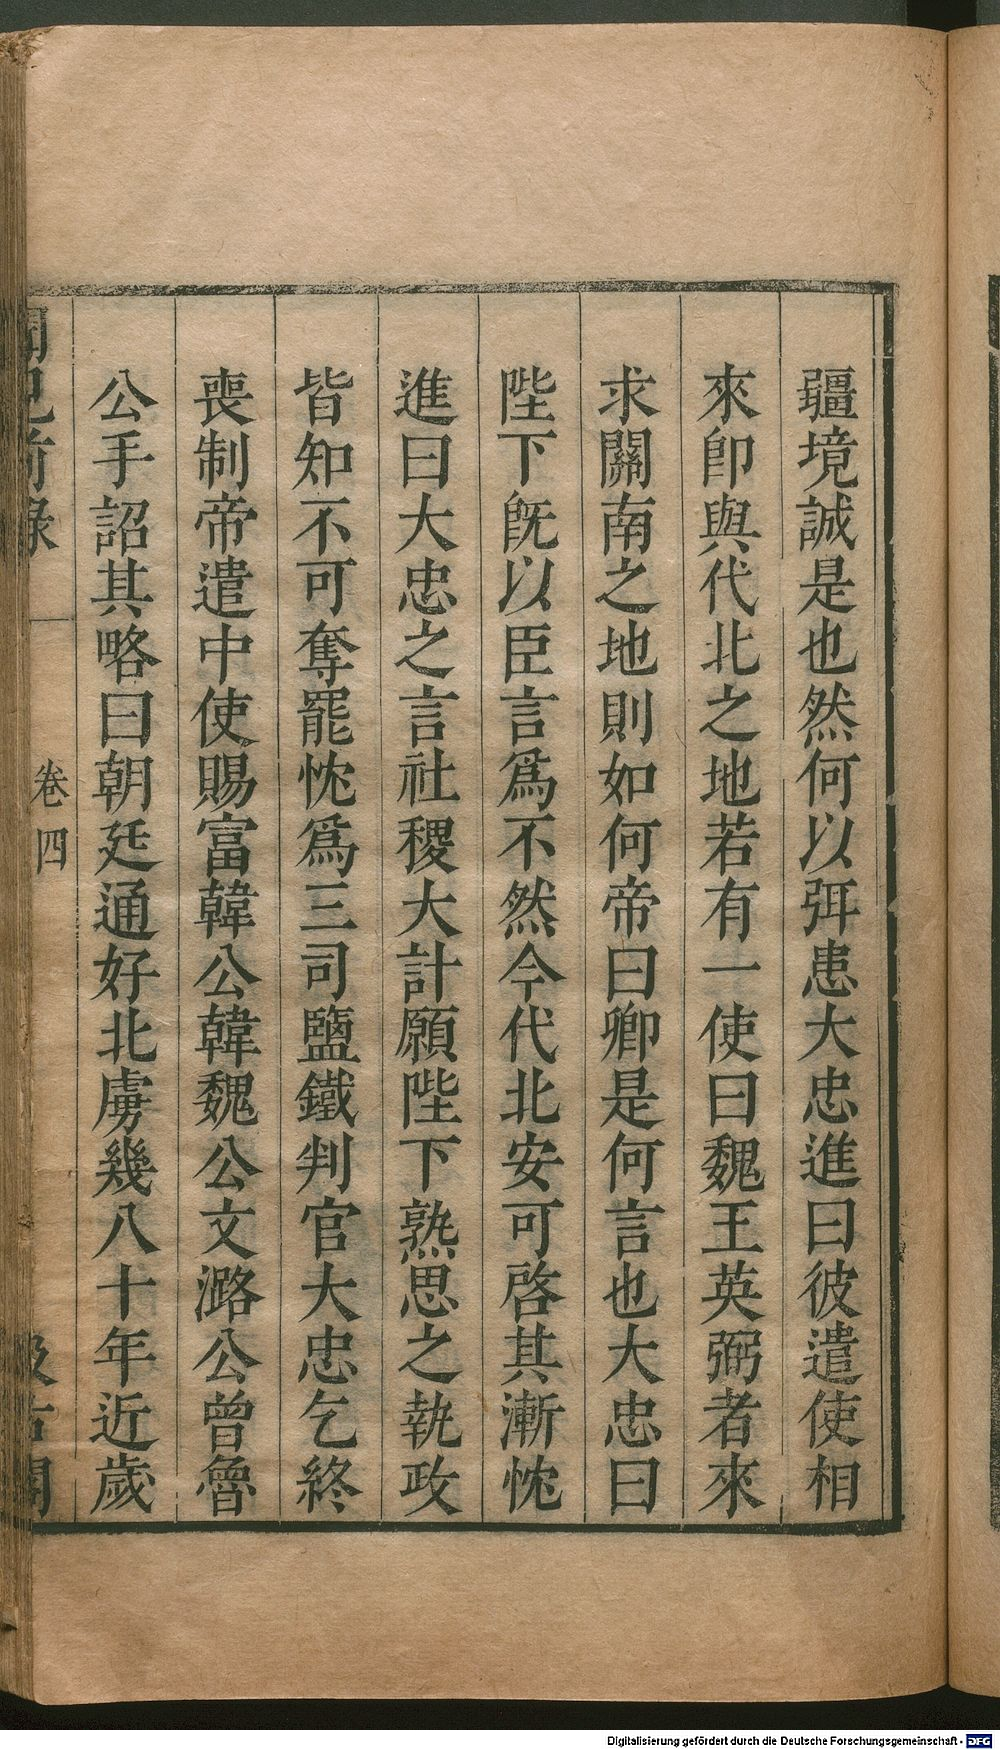 疆境誠是也然何以弭患大忠進曰彼遣使相
來卽與代北之地若有一使曰魏王英弼者來
求關南之地則如何帝曰卿是何言也大忠曰
陛下旣以臣言爲不然今代北安可啓其漸忱
進曰大忠之言社稷大計願陛下熟思之執政
皆知不可奪罷忱爲三司鹽鐵判官大忠乞終
喪制帝遣中使賜富韓公韓魏公文潞公曾魯
公手詔其略曰朝廷通好北虜幾八十年近歲
聞見前錄
卷四
汲古閣
Digitalisierung gefördert durch die Deutsche Forschungsgemeinschaft - DFG